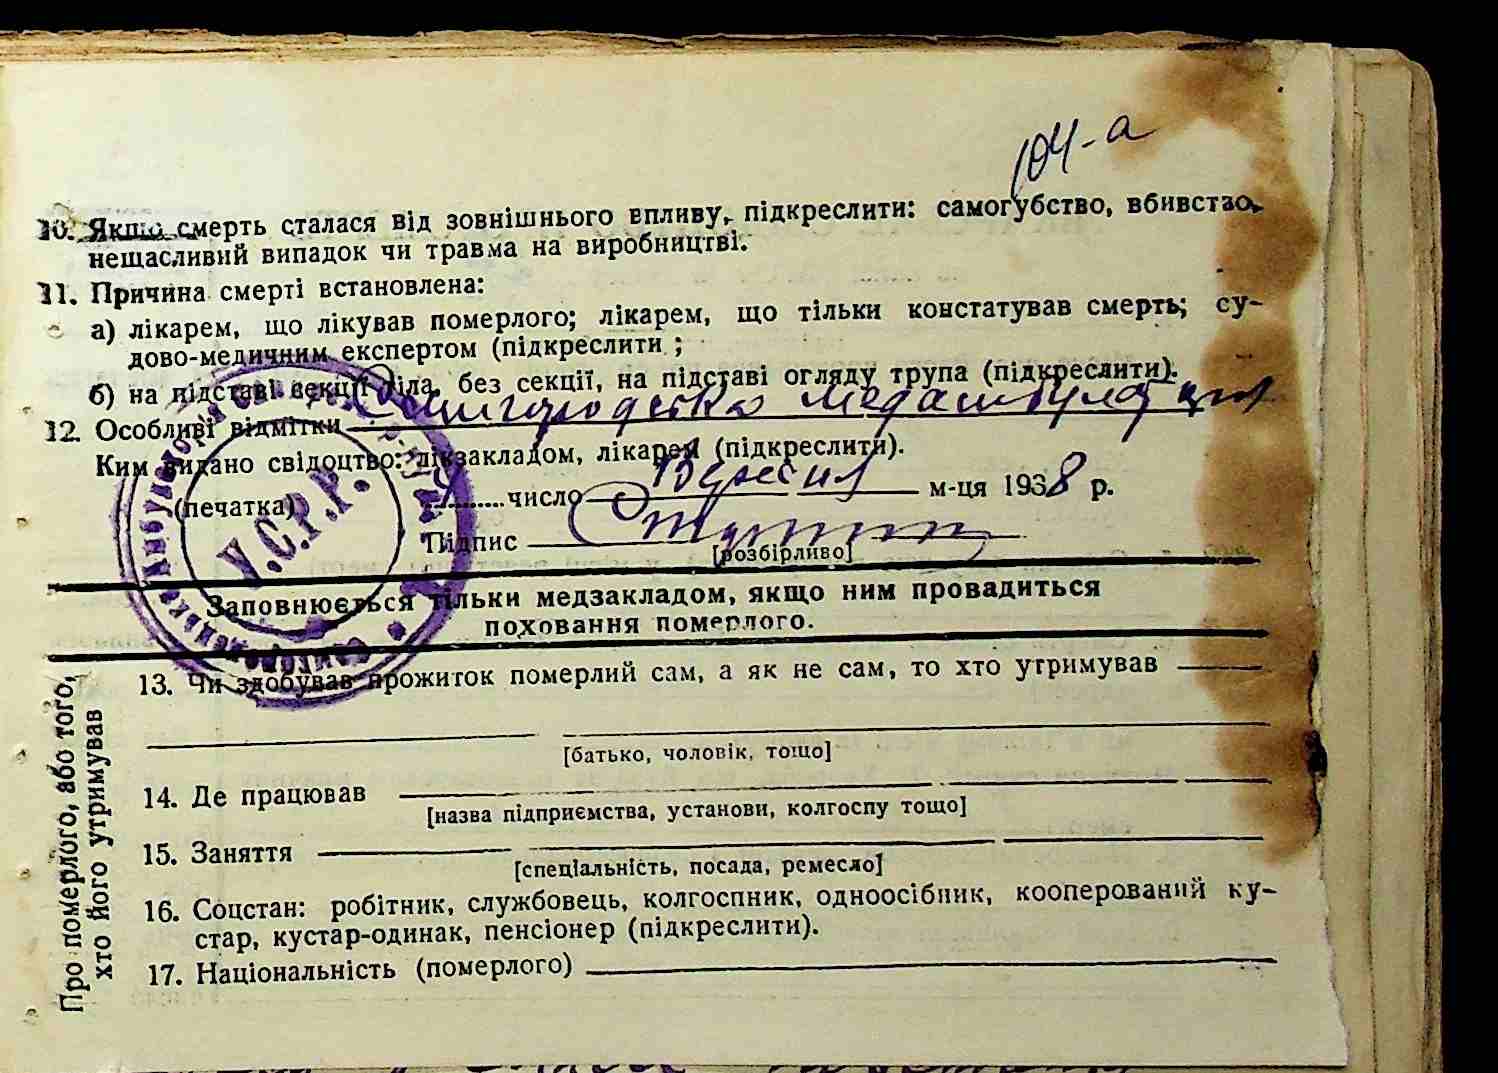 104-а
10. Якщо смерть сталася від зовнішнього впливу, підкреслити: самогубство, вбивство,
нещасливий випадок чи травма на виробництві.
11. Причина смерті встановлена:
а) лікарем, що лікував померлого; лікарем, що тільки констатував смерть; су-
дово-медичним експертом (підкреслити ;
б) на підставі секції тіла, без секції, на підставі огляду трупа (підкреслити).
12. Особливі відмітки
Ким видано свідоцтво: лікзакладом, лікарем (підкреслити).
(печатка) число Вересня м-ця 1938 р.
У.С.Р.Р.
Підпис
[розбірливо]
Заповнюється тільки медзакладом, якщо ним провадиться
поховання померлого.
Про померлого, або того,
хто його утримував
13. Чи здобував прожиток померлий сам, а як не сам, то хто утримував
[батько, чоловік, тощо]
14. Де працював
[назва підприємства, установи, колгоспу тощо]
15. Заняття
[спеціальність, посада, ремесло]
16. Соцстан: робітник, службовець, колгоспник, одноосібник, кооперований ку-
стар, кустар-одинак, пенсіонер (підкреслити).
17. Національність (померлого)